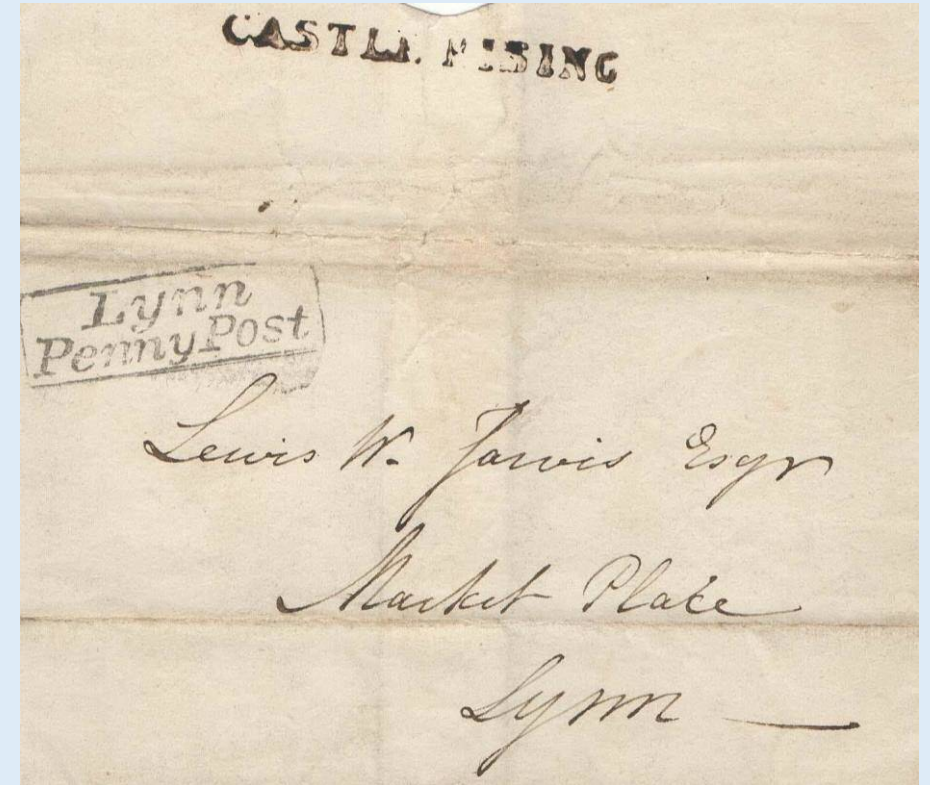 CASTLE RISING
Lynn
Penny Post
Lewis W. Jarvis Esqr
Market Place
Lynn